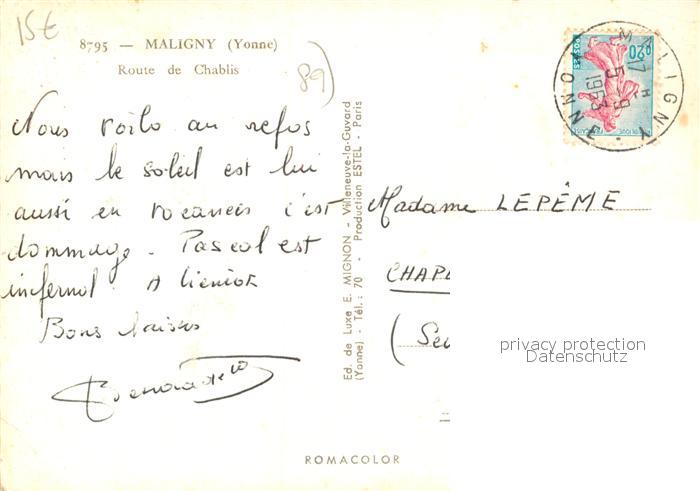 15€
8795 — MALIGNY (Yonne)
Route de Chablis
89)
Nous voilo au repos
mais le soleil est lui
aussi en vacances c'est
dommage. Pascal est
infernal. A bientot
Bons baisers
Ed. de Luxe E. MIGNON - Villeneuve-la-Guyard
(Yonne) - Tél. : 70 - Production ESTEL - Paris
MALIGNY
YONNE
17 H
5 - 9
1963
0,20
POSTES
Madame LEPÊME
CHAP
(Sei
privacy protection
Datenschutz
ROMACOLOR